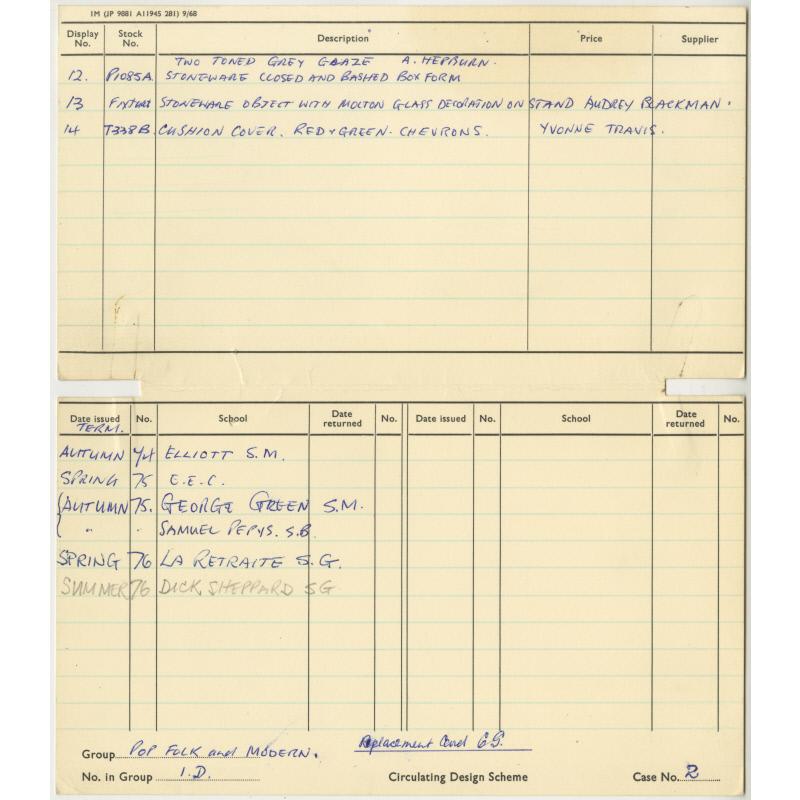 1M (JP 9881 A11945 281) 9/68
Display No. Stock No. Description Price Supplier
TWO TONED GREY GLAZE A. HEPBURN.
12. P1085A. STONEWARE CLOSED AND BASHED BOX FORM
13 STONEWARE OBJECT WITH MOLTON GLASS DECORATION ON STAND AUDREY BLACKMAN.
14 T338B. CUSHION COVER. RED + GREEN. CHEVRONS. YVONNE TRAVIS.
Date issued No. School Date returned No. Date issued No. School Date returned No.
TERM.
AUTUMN 74 ELLIOTT S.M.
SPRING 75 E.E.C.
(AUTUMN 75. GEORGE GREEN S.M.
( " . SAMUEL PEPYS. S.B.
SPRING 76 LA RETRAITE S.G.
SUMMER 76 DICK SHEPPARD SG.
Group POP FOLK and MODERN. Replacement Card
No. in Group 1.D. Circulating Design Scheme Case No. 2